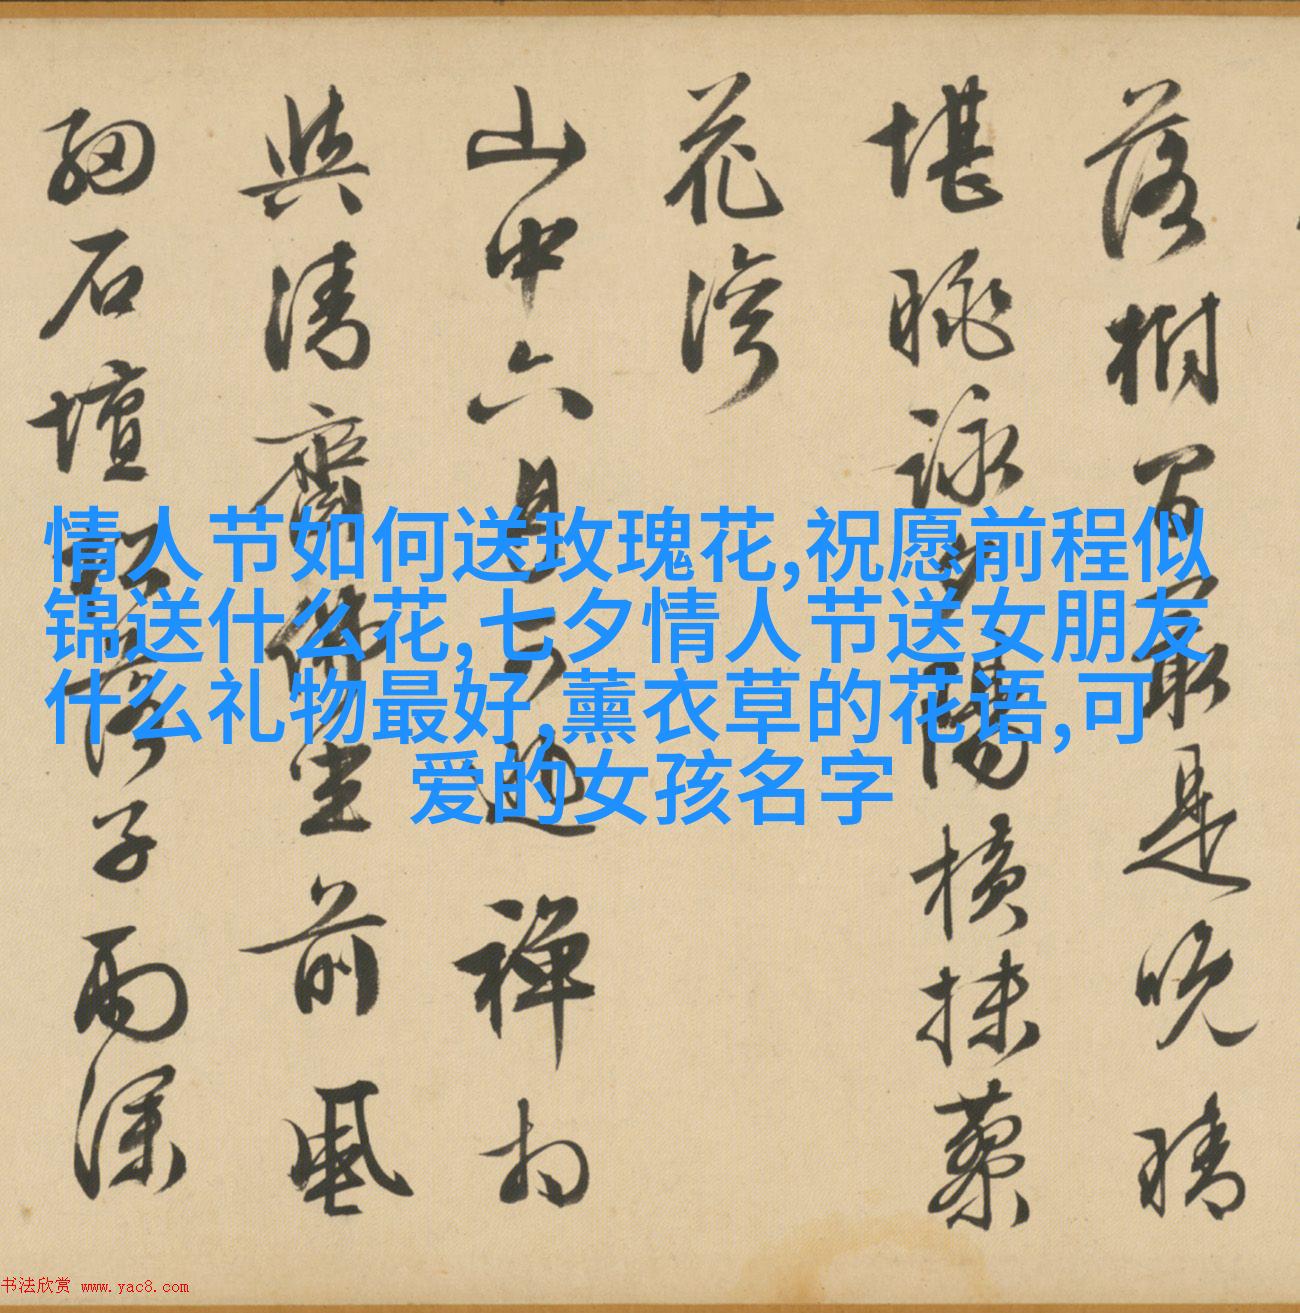 情人节如何送玫瑰花,祝愿前程似
锦送什么花,七夕情人节送女朋友
什么礼物最好,薰衣草的花语,可
爱的女孩名字
落樹間最是晚晴
堪眺詠夕陽橫抹蓼
花灣
山中六月過禪
與清齋佛坐前風
細石壇松落子雨深
书法欣赏 www.yac8.com